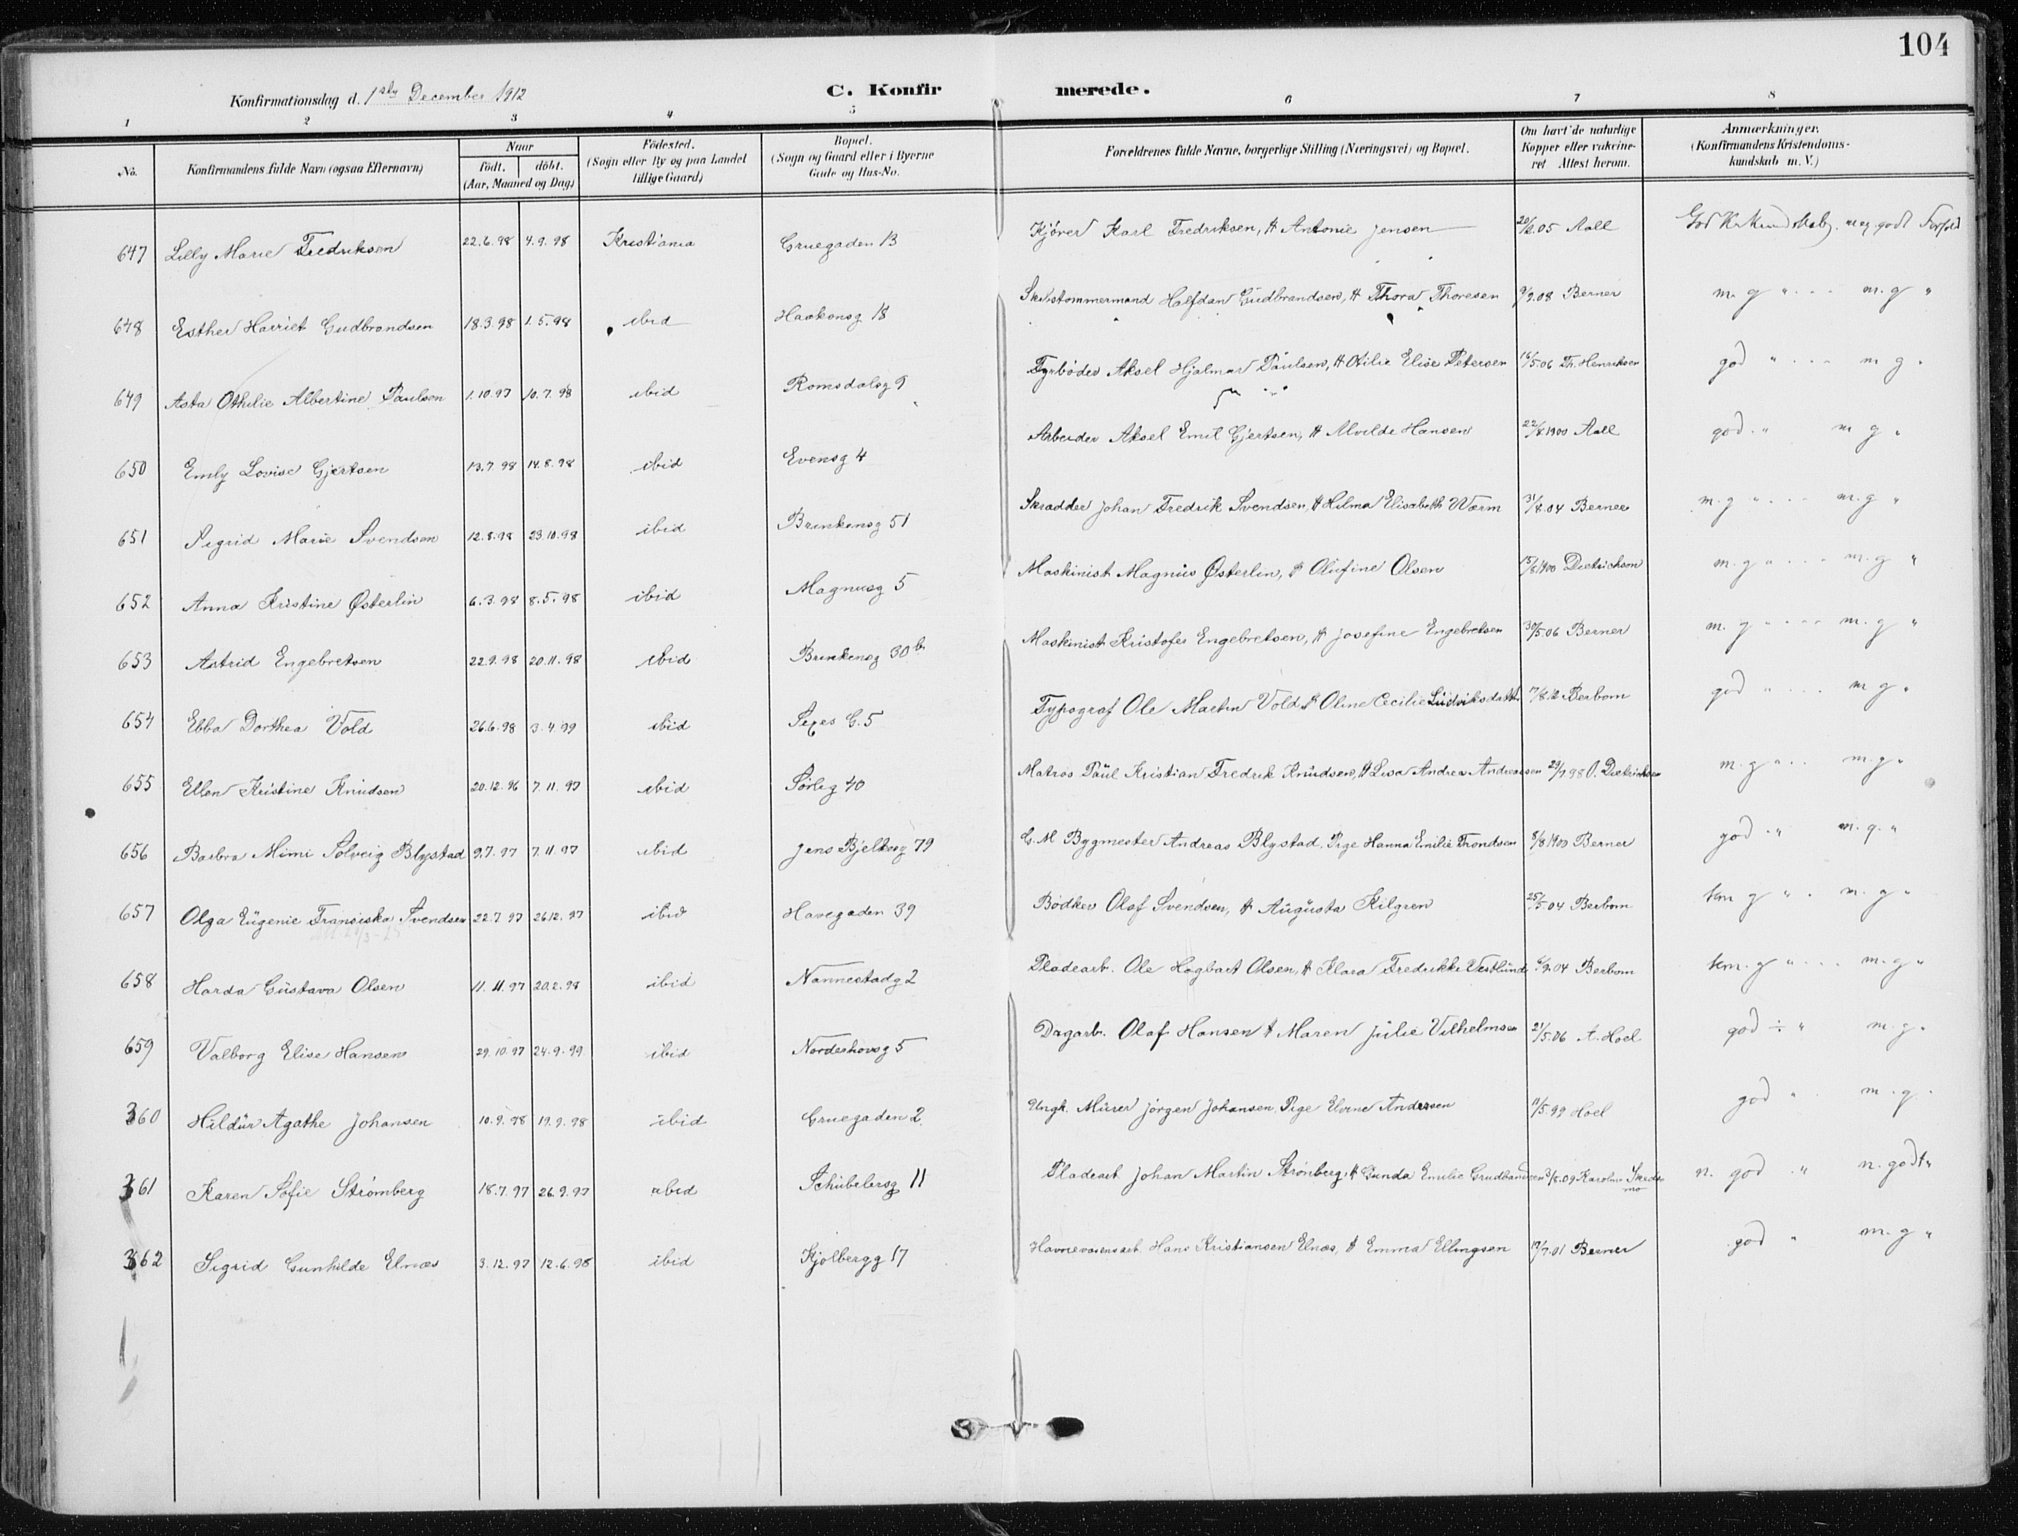 104
Konfirmationsdag d. 1ste December 1912 C. Konfirmerede.
1 2 3 4 5 6 7 8
No. Konfirmandens fulde Navn (ogsaa Efternavn) Naar Födt. döbt. (Aar, Maaned og Dag) Födested. (Sogn eller By og paa Landet tillige Gaard) Bopæl. (Sogn og Gaard eller i Byerne Gade og Hus-No. Forældrenes fulde Navne, borgerlige Stilling (Næringsvei) og Bopæl. Om havt de naturlige Kopper eller vakcineret Attest herom. Anmærkninger. (Konfirmandens Kristendomskundskab m. V.)
647 Lilly Marie Fredriksen 22.6.98 4.9.98 Kristiania Gruegaden 13 Kjører Karl Fredriksen, H Antonie Jensen 05 Aall God Kr. Kundskab. meg. godt Forhold
648 Esther Harriet Gudbrandsen 18.3.98 1.5.98 ibid Haakonsg 18 Skibstømmermand Halfdan Gudbrandsen, H Thora Thoresen 9/9.08 Berner m. g " m. g "
649 Asta Othilie Albertine Paulsen 1.10.97 10.7.98 ibid Romsdalsg 9 Fyrbøder Aksel Hjalmar Paulsen, H Otilie Elise Petersen 16/5.06 Th. Henriksen god " m g "
650 Emly Lovise Gjertsen 13.7.98 14.8.98 ibid Evensg 4 Arbeider Aksel Emil Gjertsen, H Alvilde Hansen 22/8 1900 Aall god " m g "
651 Sigrid Marie Svendsen 12.8.98 23.10.98 ibid Brinkensg 51 Skradder Johan Fredrik Svendsen, H Hilma Elisabeth Wærm 31/8.04 Berner m. g " m. g "
652 Anna Kristine Østerlin 6.3.98 8.5.98 ibid Magnusg 5 Maskinist Magnus Østerlin, H Olufine Olsen 15/8 1900 Dietrichson m. g " m. g "
653 Astrid Engebretsen 22.9.98 20.11.98 ibid Brinkensg 30b Maskinist Kristofer Engebretsen, H Josefine Engebretsen 30/5.06 Berner m. g " m. g "
654 Ebba Dorthea Vold 26.6.98 3.4.99 ibid Sexes G. 5 Typograf Ole Martin Vold, H Oline Cecilie Ludviksdatter 17/8.12 Berbom god " m g "
655 Ellen Kristine Knudsen 20.12.96 7.11.97 ibid Sørlig 40 Matros Paul Kristian Fredrik Knudsen, H Lisa Andrea Andreassen 29/7.98 O. Dietrichson m. g " m. g "
656 Barbra Mimi Solveig Blystad 9.7.97 7.11.97 ibid Jens Bjelkesg 79 G. M Bygmester Andreas Blystad, Pige Hanna Emilie Trondsen 8/8 1900 Berner god " m. g. "
657 Olga Eugenie Fransiska Svendsen 22.7.97 26.12.97 ibid Havegaden 39 Bødker Olaf Svendsen, H Augusta Kilgren 25/5.04 Berbom tem g " m. g "
658 Harda Gustava Olsen 11.11.97 20.2.98 ibid Nannestadg 2 Pladearb. Ole Hagbart Olsen, H Klara Fredrikke Vestlund 6/9.04 Berbom tem. g " m. g "
659 Valborg Elise Hansen 29.10.97 24.9.99 ibid Norderhovsg 5 Dagarb. Olaf Hansen H Maren Julie Vilhelmsen 21/5.06 A. Hoel god ÷ " m. g.
360 Hildur Agathe Johansen 10.9.98 19.9.98 ibid Gruegaden 2 Ungk. Murer Jørgen Johansen, Pige Elvine Andersen 11/5.99 Hoel god " m. g.
361 Karen Sofie Strømberg 18.7.97 26.9.97 ibid Schübelersg 11 Pladearb Johan Martin Strømberg, H Gunda Emilie Grudbandsen 3/8.09 Karoline Skredsmo n. god " n. godt "
362 Sigrid Gunhilde Elnæs 3.12.97 12.6.98 ibid Kjølbergg 17 Havnevæsensarb. Hans Kristiansen Elnæs, H Emma Ellingsen 19/7.01 Berner god " m. g "